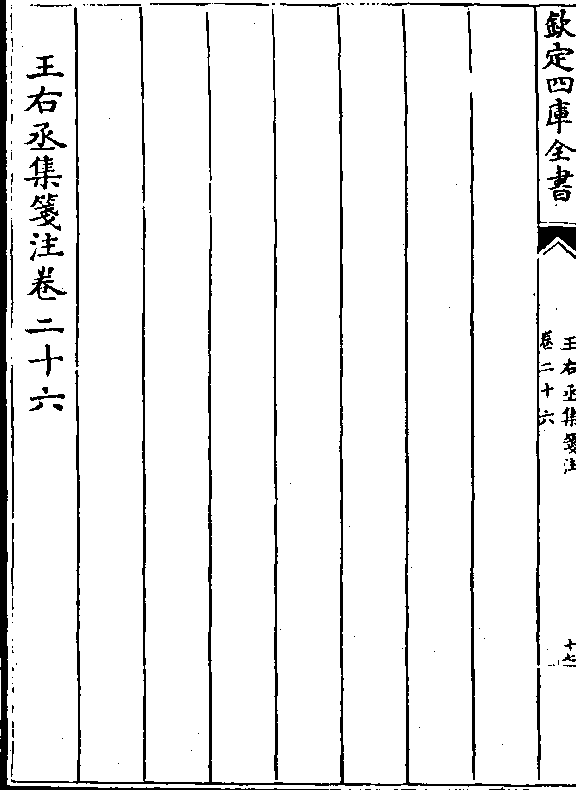 欽定四庫全書
王右丞集箋注
卷二十六
十七
王右丞集箋注卷二十六